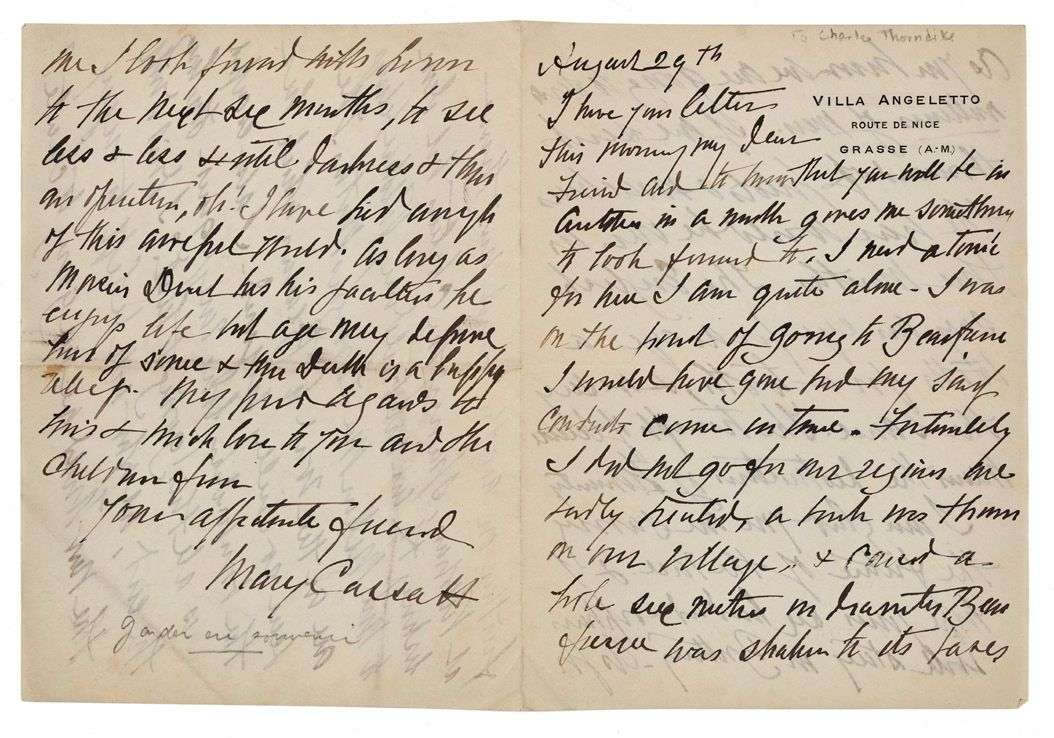 To Charles Thorndike
August 29th
VILLA ANGELETTO
ROUTE DE NICE
GRASSE (A.-M.)
I have your letter
this morning my dear
Friend and to know that you will be in
Antibes in a month gives me something
to look forward to. I need a tonic
for here I am quite alone - I was
on the point of going to Beaufresne
I would have gone had my sauf
conduits come in time. Fortunately
I did not go for our regions are
sadly treated, a bomb was thrown
on our village, & caused a
hole six metres in diameter Beau
fresne was shaken to its bases
me I look forward with horror
to the next six months, to see
less & less until darkness & then
an operation, oh! I have had enough
of this awful world. As long as
Monsieur has his faculties he
enjoys life but age may deprive
him of some & then Death is a happy
relief. My kind regards to
him & much love to you and the
children from
Your affectionate friend
Mary Cassatt
Garder en souvenir